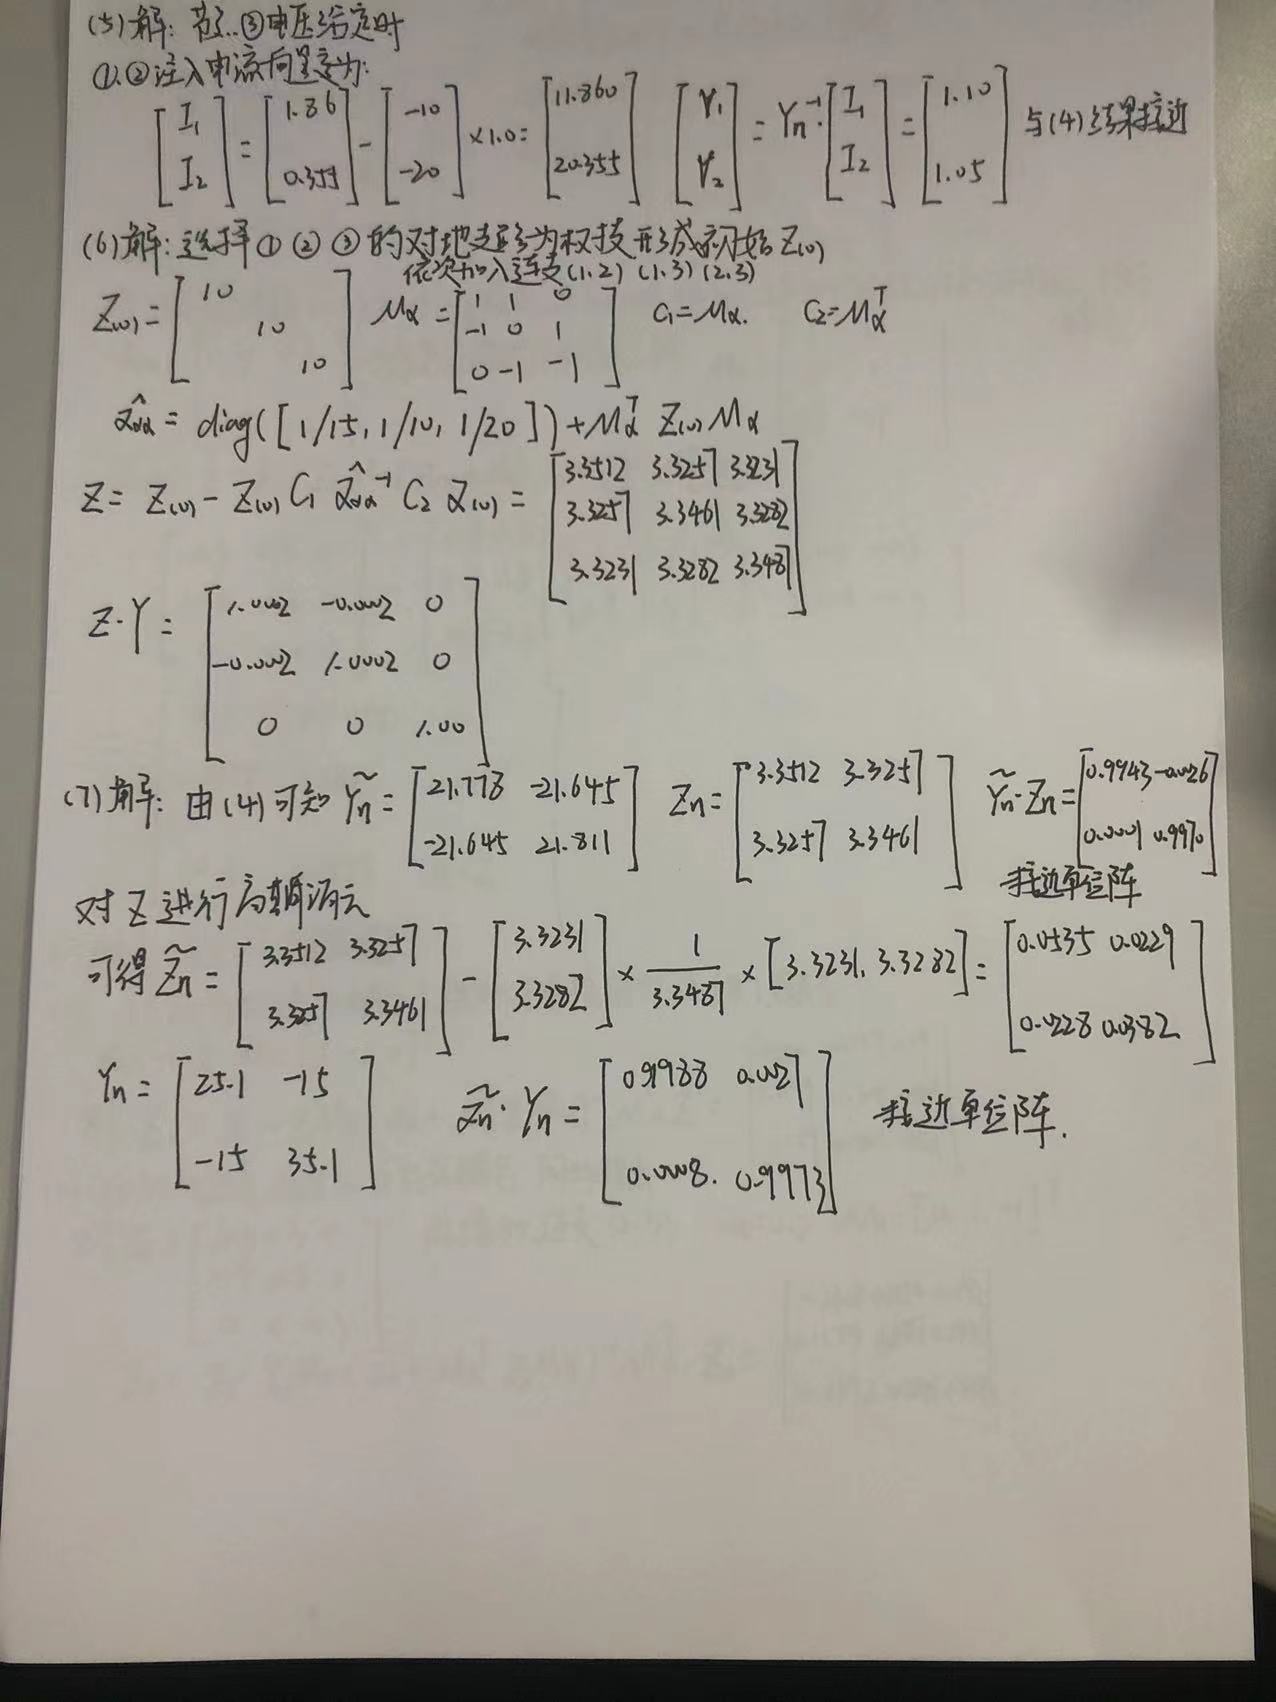 (5)解: 节点③电压给定时
①.②注入电流向量变为:
[I₁ I₂] = [1.86 0.355] - [-10 -20] ×1.0= [11.860 20.355] [V₁ V₂] = Yn⁻¹·[I₁ I₂] = [1.10 1.05] 与(4)结果接近
(6)解: 选择①②③的对地支路为树枝形成初始Z₍₀₎
依次加入连支(1,2) (1,3) (2,3)
Z₍₀₎= [10 10 10] Mα = [1 1 0 -1 0 1 0 -1 -1] C₁=Mα. C₂=Mαᵀ
Ẑαα = diag([1/15, 1/10, 1/20])+Mαᵀ Z₍₀₎ Mα
Z= Z₍₀₎ - Z₍₀₎ C₁ Ẑαα⁻¹ C₂ Z₍₀₎ = [3.3512 3.3257 3.3231 3.3257 3.3461 3.3282 3.3231 3.3282 3.3487]
Z·Y = [1.002 -0.002 0 -0.002 1.0002 0 0 0 1.00]
(7)解: 由(4)可知 Ỹn = [21.778 -21.645 -21.645 21.811] Zn= [3.3512 3.3257 3.3257 3.3461] Ỹn·Zn= [0.9943 -0.026 0.0001 0.9970]
接近单位阵
对Z进行高斯消去
可得 Z̃n = [3.3512 3.3257 3.3257 3.3461] - [3.3231 3.3282] × 1/3.3487 × [3.3231, 3.3282] = [0.0535 0.0229 0.0228 0.0382]
Yn = [25.1 -15 -15 35.1] Z̃n·Yn = [0.9988 0.0027 0.0008. 0.9973] 接近单位阵.